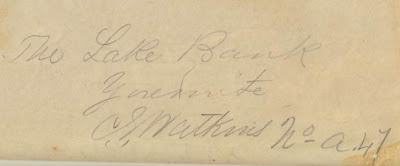 The Lake Bank
Yosemite
C.E. Watkins No a.47